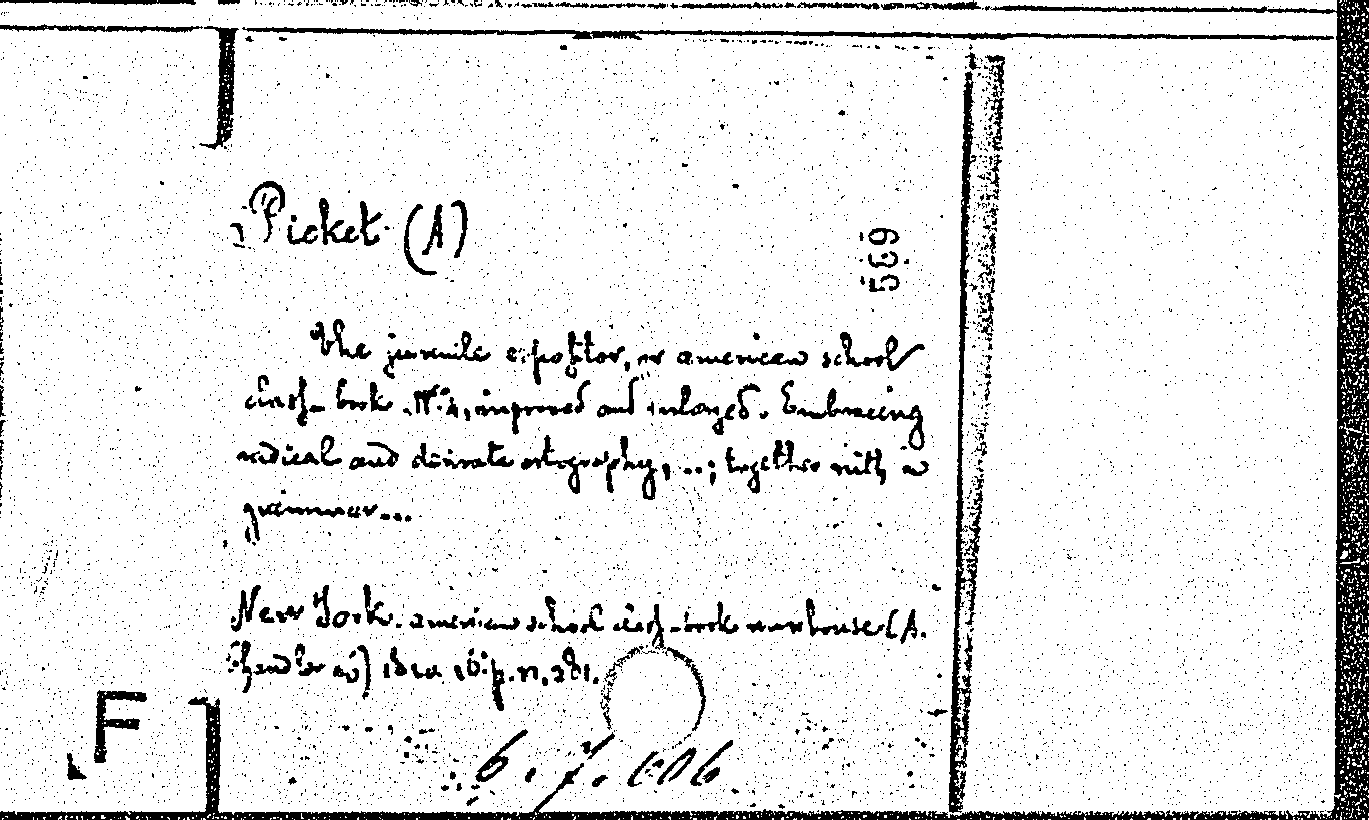 Picket (A)
569
The juvenile expositor, or american school
class-book. N° 4, improved and enlarged. Embracing
radical and derivate ortography, ..; together with a
grammar...
New York. american school class-book warehouse (A.
16° p.
6. 7. 606
F